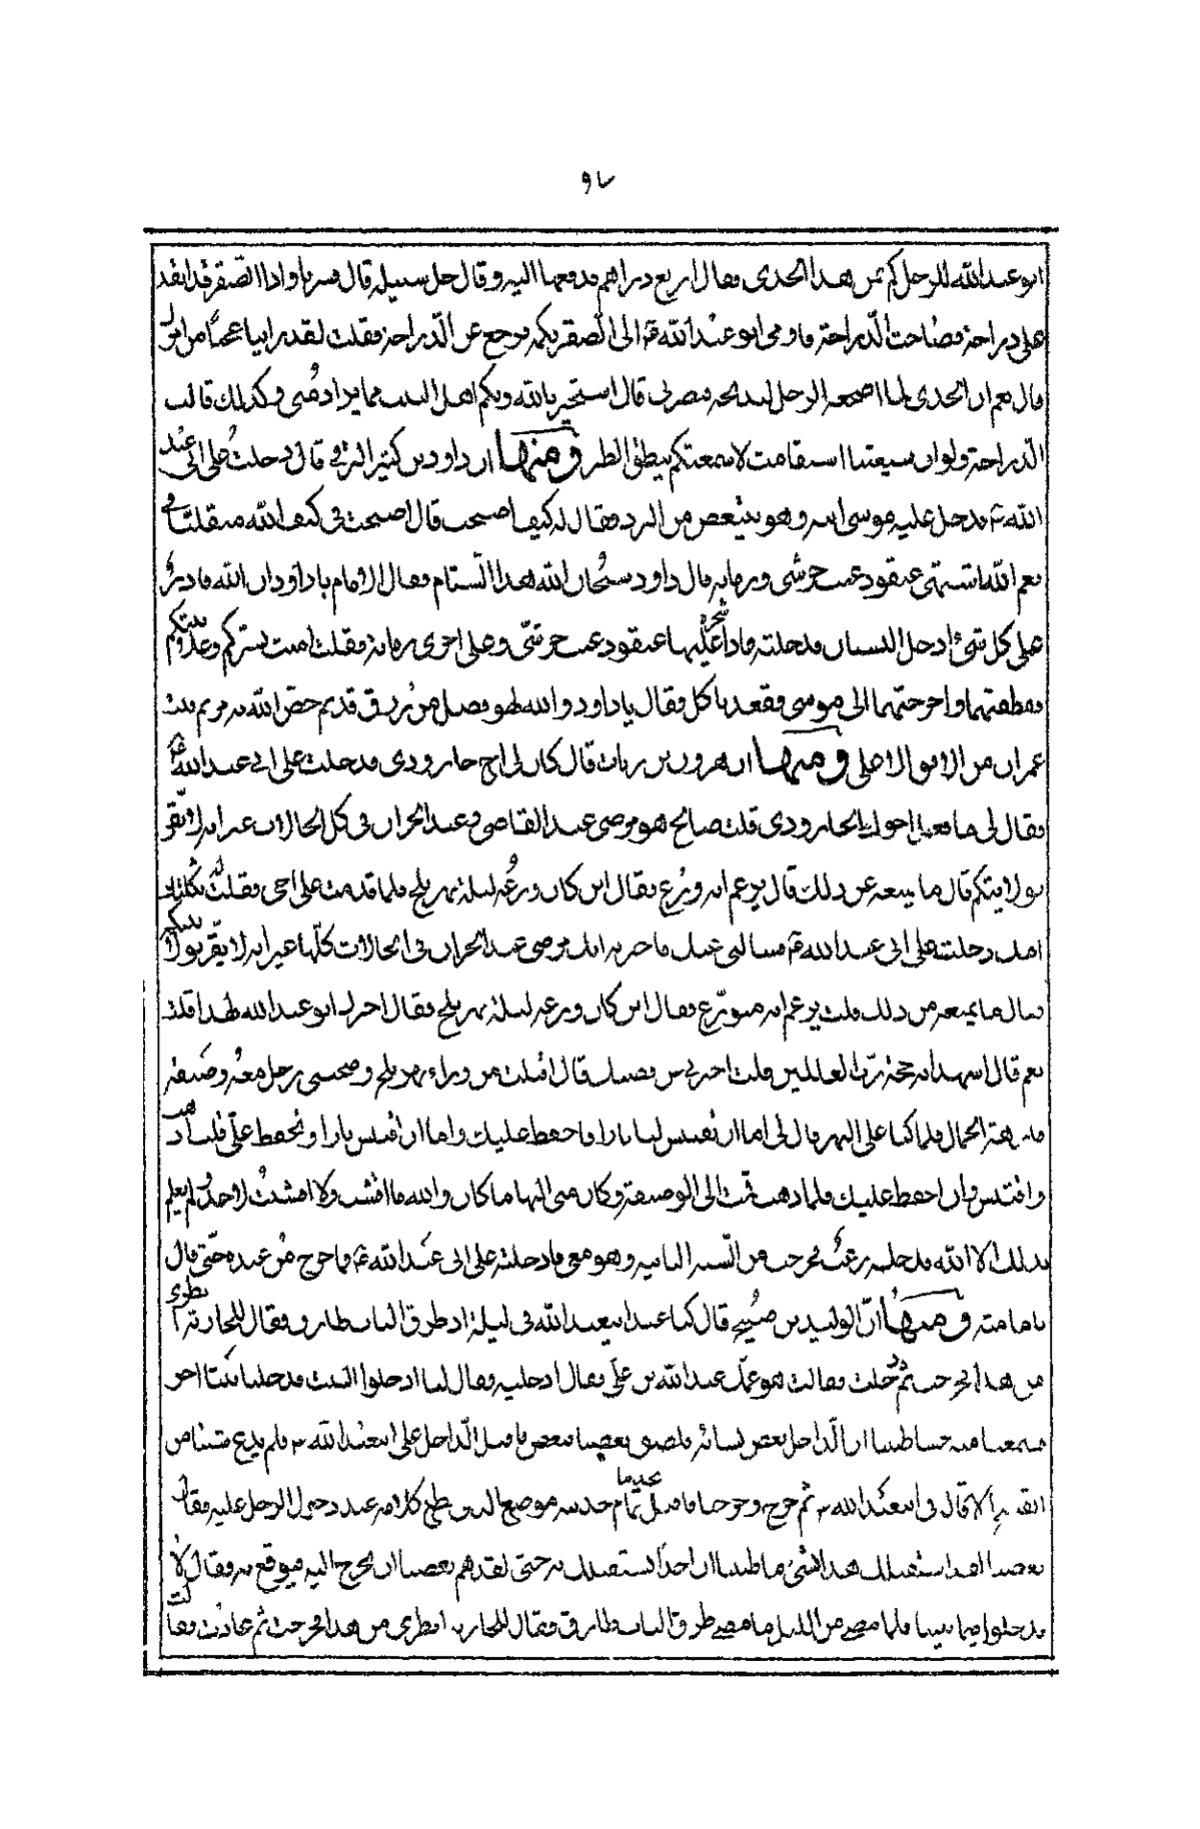 ابو عبد الله للرجل كم ثمن هذا الجدى فقال اربع دراهم فدفعها اليه وقال خل سبيله قال فسرنا واذا الصقر قد انقض
على دراجة فصاحت الدراجة فاومى ابو عبد الله ع الى الصقر بكمه فرجع عن الدراجة فقلت لقد راينا عجبا من امرك
قال نعم ان الجدى لما اضجعه الرجل ليذبحه فبصر بى قال استجير بالله وبكم اهل البيت مما يراد منى وكذلك قالت
الدراجة ولو ان شيعتنا استقامت لاسمعتكم منطق الطير ومنها ان داود بن كثير الرقى قال دخلت على ابى عبد
الله ع فدخل عليه موسى ابنه وهو ينتفض من البرد فقال له كيف اصبحت قال اصبحت فى كنف الله متقلبا فى
نعم الله اشتهى عنقود عنب حرشى ورمانة قال داود سبحان الله هذا الشتاء فقال الامام يا داود ان الله قادر
على كل شىء ادخل البستان فدخلته فاذا شجرة عليها عنقود عنب حرشى وعلى اخرى رمانة فقلت امنت بسركم وعلانيتكم
فقطفتهما واخرجتهما الى موسى فقعد ياكل فقال يا داود والله لهو فضل من رزق قديم خص الله به مريم بنت
عمران من الافق الاعلى ومنها ان هرون بن رباب قال كان لى اخ جارودى فدخلت على ابى عبد الله ع
فقال لى ما فعل اخوك الجارودى قلت صالح هو مرضى عند القاضى وعند الجيران فى كل الحالات غير انه لا يقر
بولايتكم قال ما يمنعه عن ذلك قال يزعم انه ورع فقال اين كان ورعه ليلة نهر بلخ فلما قدمت على اخى فقلت له ثكلتك
امك دخلت على ابى عبد الله ع فسالنى عنك فاخبرته انك مرضى عند الجيران فى الحالات كلها غير انه لا يقر بولايتكم
فقال ما يمنعه من ذلك قلت يزعم انه متورع فقال اين كان ورعه ليلة نهر بلخ فقال اخبرك ابو عبد الله بهذا قلت
نعم قال اشهد انه حجة رب العالمين قلت اخبرنى عن قصتك قال اقبلت من وراء نهر بلخ وصحبنى رجل معه وصيفة
فارهة الجمال فلما كنا على النهر قال لى اما ان تقتبس لنا نارا فاحفظ عليك واما ان اقتبس نارا وتحفظ على قلت اذهب
واقتبس وانا احفظ عليك فلما ذهب قمت الى الوصيفة وكان منى اليها ما كان والله ما افشت ولا افشيت لاحد ولم يعلم
بذلك الا الله فدخله رعب فخرجت من السنة الثانية وهو معى فادخلته على ابى عبد الله ع فما خرج من عنده حتى قال
بامامته ومنها ان الوليد بن صبيح قال كنا عند ابى عبد الله فى ليلة اذ طرق الباب طارق فقال للجارية انظرى
من هذا فخرجت ثم دخلت فقالت هو عمك عبد الله بن على فقال ادخليه وقال لنا ادخلوا البيت فدخلنا بيتا اخر
فسمعنا منه حسا ظننا ان الداخل بعض نسائه فلصق بعضنا ببعض فاقبل الداخل على ابى عبد الله ع فلم يدع شيئا من
القبيح الا قال فى ابى عبد الله ع ثم خرج وخرجنا فاقبل يحدثنا تمام حديثه موضع الذى قطع كلامه عند دخول الرجل عليه فقال
بعضنا لقد استقبلك هذا بشىء ما ظننا ان احدا يستقبلك به حتى لقد هم بعضنا ان يخرج اليه فيوقع به فقال لا
تدخلوا فيما بيننا فلما مضى من الليل ما مضى طرق الباب طارق فقال للجارية انظرى من هذا فخرجت ثم عادت فقالت